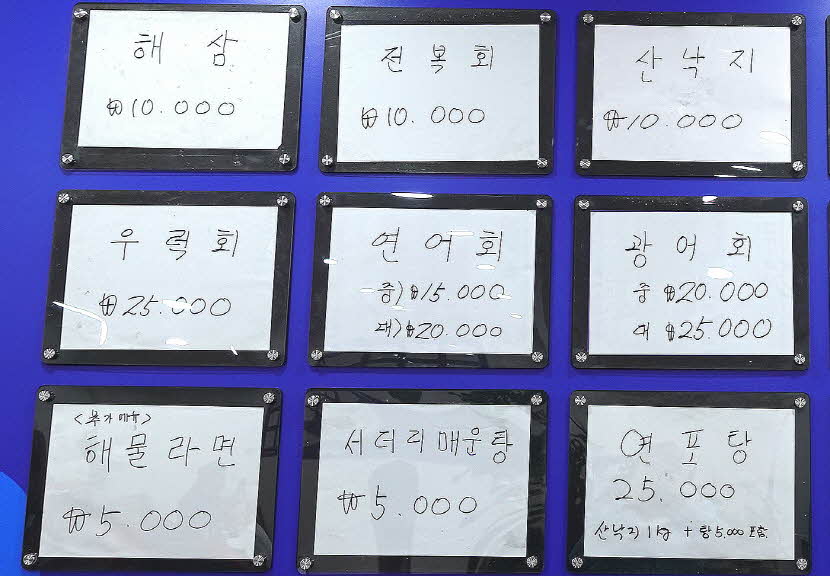 해삼
₩10.000
전복회
₩10.000
산낙지
₩10.000
우럭회
₩25.000
연어회
중) ₩15.000
대) ₩20.000
광어회
중 ₩20.000
대 ₩25.000
<추가메뉴>
해물라면
₩5.000
서더리매운탕
₩5.000
연포탕
25.000
산낙지 1kg + 탕 5.000 포함